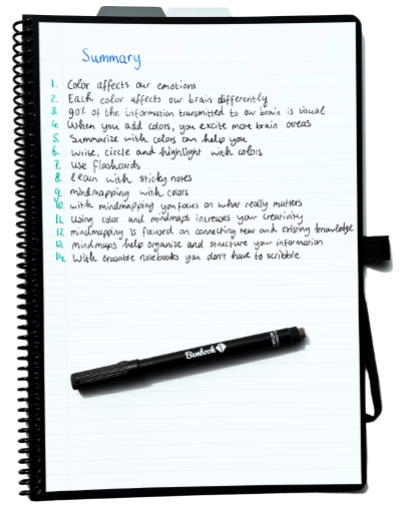 Summary
1. Color affects our emotions
2. Each color affects our brain differently
3. 90% of the information transmitted to our brain is visual
4. When you add colors, you excite more brain areas
5. Summarize with colors can help you
6. write, circle and highlight with colors
7. Use flashcards
8. learn with sticky notes
9. mindmapping with colors
10. with mindmapping you focus on what really matters
11. Using color and mindmaps increases your creativity
12. mindmapping is focused on connecting new and existing knowledge
13. mindmaps help organize and structure your information
14. With erasable notebooks you don't have to scribble
Bambook